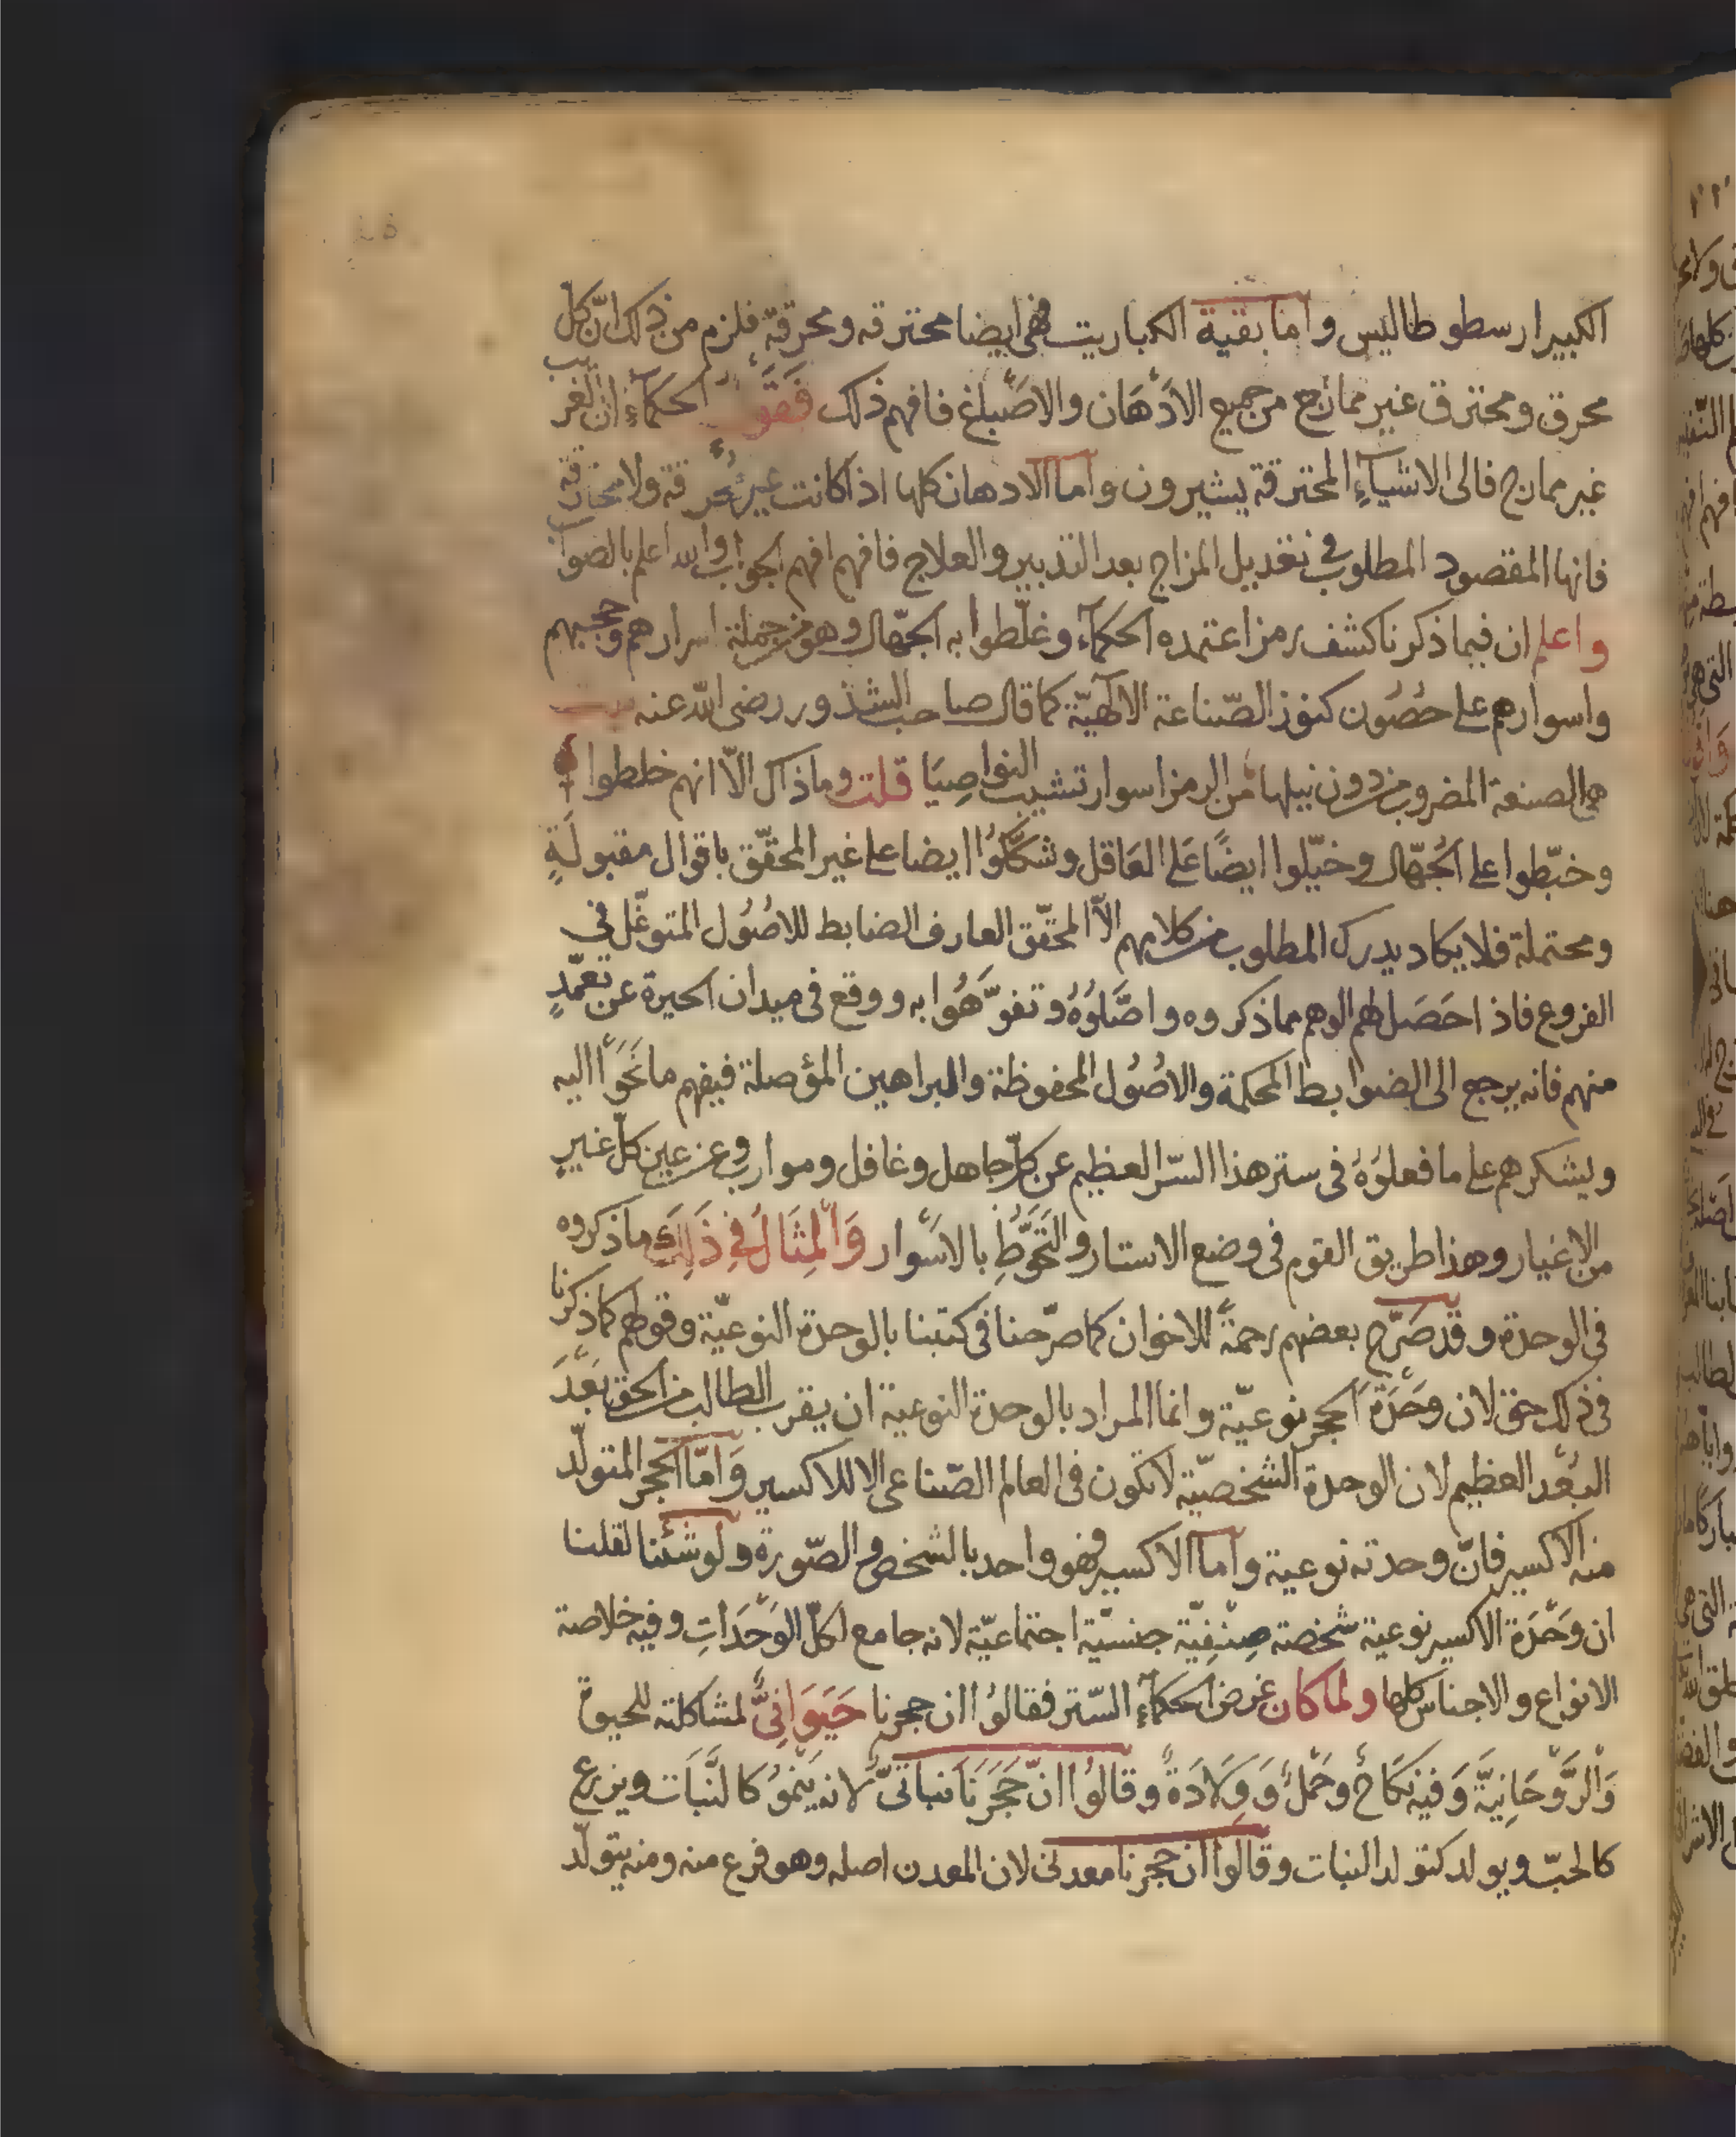 الكبير ارسطوطاليس واما بقية الكباريت فهى ايضا محترقه ومحرقة فلزم من ذلك انّ كل
محرق ومحترق غير ممازج من جميع الادهان والاصباغ فافهم ذلك فقول الحكماء ان الغريب
غير ممازج فالى الاشياء المحترقة يشيرون واما الادهان كلها اذا كانت غير محرقة ولا محترقة
فانها المقصود المطلوب فى تعديل المزاج بعد التدبير والعلاج فافهم افهم الجواب والله اعلم بالصواب
واعلم ان فيما ذكرنا كشف رمز اعتمده الحكماء وغلّطوا به الجهّال وهو من جملة اسرارهم وحجبهم
واسوارهم على حصُون كنوز الصّناعة الالهيّة كما قال صاحب الشذور رضى الله عنه
هى الصنعة المضروب من دون نيلها من الرمز اسوار تشيب النواصِيَا قلت وما ذاك الّا انهم خلطوا
وخبّطوا على الجُهّال وخيّلوا ايضًا عَلى العَاقل وشكّلُوا ايضا على غير المحقّق باقوال مقبولَةٍ
ومحتملة فلا يكاد يدرك المطلوب من كلامهم الّا المحقّق العارف الضابط للاصُول المتوغّل فى
الفروع فاذا حَصَل لهم الوهم مما ذكروه واصَّلوُهُ وتفوَّهُوا به ووقع فى ميدان الحيرة عن تعمّدٍ
منهم فانه يرجع الى الضوابط المحكمة والاصُول المحفوظة والبراهين المؤصلة فيفهم ما نَحَوْا اليه
ويشكرهم على ما فعلوُهُ فى ستر هذا السّر العظيم عن كلّ جاهل وغافل ومواربٍ وعن عين كلّ غيرٍ
من الاغيار وهذا طريق القوم فى وضع الاستار والتَحَوُّطِ بالاسْوار وَالمِثَالُ فِى ذَلِكَ ما ذكروه
فى الوحدة وقد صَرّح بعضهم رحمةً للاخوان كما صرّحنا فى كتبنا بالوحدة النوعيّة وقولهم كما ذكرنا
فى ذلك حق لان وَحْدَةَ الحجر نوعيّة وانما المراد بالوحدة النوعية ان يقرب الطالب من الحق بَعْدَ
البُعْد العظيم لان الوحدة الشخصيّة لا تكون فى العالم الصّناعى الا للاكسير وَامّا الحجر المتولّد
منه الاكسير فانّ وحدته نوعية واما الاكسير فهو واحد بالشخص والصّورة ولو شئنا لقلنا
ان وَحْدَة الاكسير نوعية شخصة صِنْفِيّة جنسيّة اجتماعيّة لانه جامع لكلّ الوَحْدَاتِ وفيه خلاصة
الانواع والاجناس كلها ولما كان غرض الحكماء السّتر فقالوُا ان حجرنا حَيَوَانىٌّ لمشاكلته للحيوة
وَالرَّوْحَانِيَّة وَفيه نكَاحٌ وحَمْلٌ وَوِلَادَةٌ وقالوُا انّ حَجَرَنَا نباتىٌّ لانه يَنْموُ كالنَّبَات ويزرع
كالحبّ ويولد كتولد النبات وقالوا ان حجرنا معدنى لان المعدن اصله وهو فرع منه ومنه يتولّد